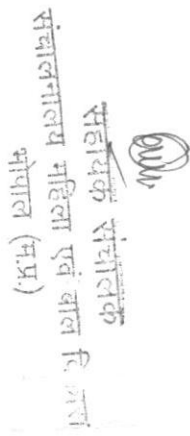 सहायक संचालक
संचालनालय महिला एवं बाल वि.
भोपाल (म.प्र.)